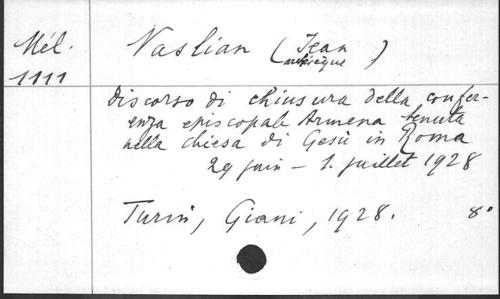 Mél. 1111
Naslian (Jean archevêque)
Discorso di chiusura della confer-
enza episcopale Armena tenuta
nella chiesa di Gesù in Roma
29 juin - 1. juillet 1928
Turin, Giani, 1928. 8°